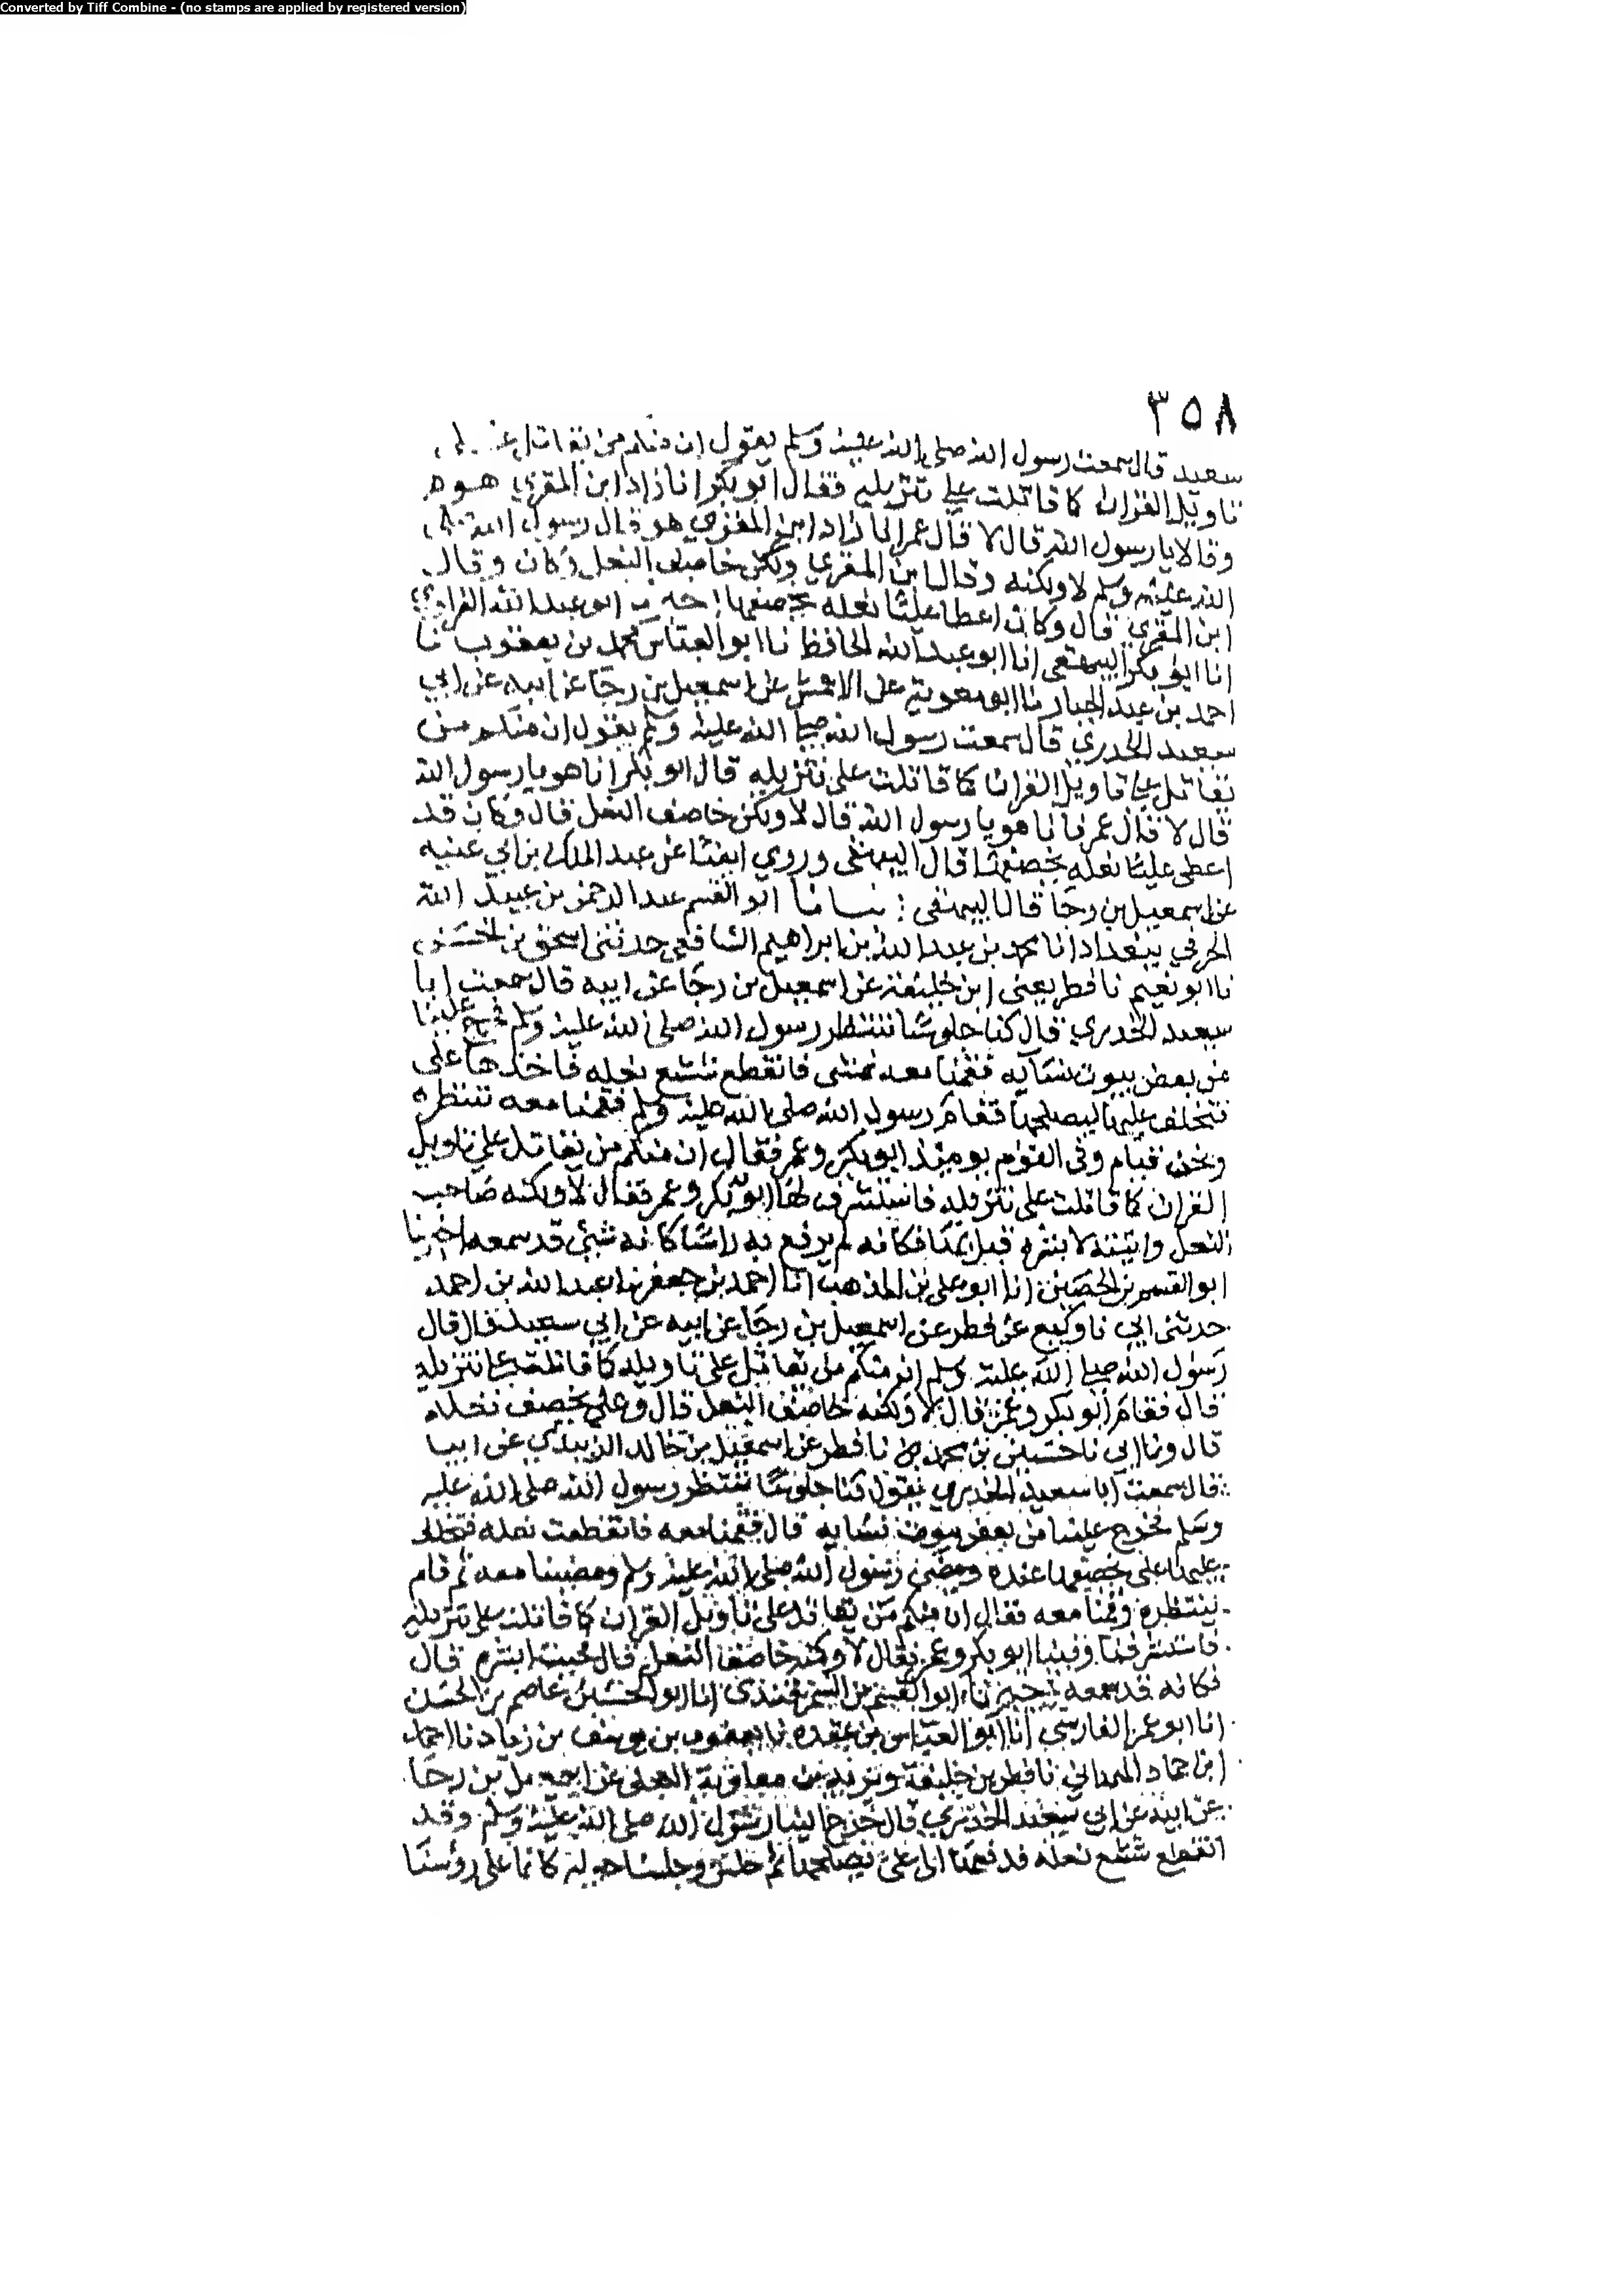 Converted by Tiff Combine - (no stamps are applied by registered version)
٣٥٨
سعيد قال سمعت رسول الله صلى الله عليه وسلم يقول ان منكم من يقاتل على
تاويل القران كما قاتلت على تنزيله فقال ابو بكر انا زاد ابن المقري هو
وقالا يا رسول الله قال لا قال عمر انا زاد ابن المقري هو قال رسول الله صلى
الله عليه وسلم لا ولكنه وقال ابن المقري ولكن خاصف النعل وكان وقال
ابن المقري قال وكان اعطا عليا نعله يخصفها ابو عبد الله الفراوي
انا ابو بكر البيهقي انا ابو عبد الله الحافظ نا ابو العباس محمد بن يعقوب نا
احمد بن عبد الجبار نا ابو معوية عن الاعمش عن اسمعيل بن رجا عن ابيه عن ابي
سعيد الخدري قال سمعت رسول الله صلى الله عليه وسلم يقول ان منكم من
يقاتل على تاويل القران كما قاتلت على تنزيله قال ابو بكر انا هو يا رسول الله
قال لا قال عمر فانا هو يا رسول الله قال لا ولكن خاصف النعل قال وكان قد
اعطى عليا نعله يخصفها قال البيهقي وروي ايضا عن عبد الملك بن ابي غنيه
عن اسمعيل بن رجا قال البيهقي ابو القسم عبد الرحمن بن عبيد الله
الحرفي ببغداد انا محمد بن عبد الله بن ابراهيم الشافعي حدثني اسحق بن الحسن
نا ابو نعيم نا فطر يعني ابن خليفة عن اسمعيل بن رجا عن ابيه قال سمعت ابا
سعيد الخدري قال كنا جلوسا ننتظر رسول الله صلى الله عليه وسلم فخرج علينا
من بعض بيوت نسايه فقمنا معه نمشي فانقطع شسع نعله فاخذها على
فتخلف عليها ليصلحها فقام رسول الله صلى الله عليه وسلم فقمنا معه ننتظره
ونحن قيام وفي القوم يوميذ ابو بكر وعمر فقال ان منكم من يقاتل على تاويل
القران كما قاتلت على تنزيله فاستشرف لها ابو بكر وعمر فقال لا ولكنه صاحب
النعل واتيته لابشره قبل بها فكانه لم يرفع به راسا كانه شيئ قد سمعه اخبرنا
ابو القسم بن الحصين انا ابو علي بن المذهب انا احمد بن جعفر نا عبد الله بن احمد
حدثني ابي نا وكيع عن فطر عن اسمعيل بن رجا عن ابيه عن ابي سعيد قال قال
رسول الله صلى الله عليه وسلم ان منكم من يقاتل على تاويله كما قاتلت على تنزيله
قال فقام ابو بكر وعمر قال لا ولكنه خاصف النعل قال وعلي يخصف نعله
قال ونا ابي نا حسين بن محمد نا فطر عن اسمعيل بن خالد الزبيدي عن ابيه
قال سمعت ابا سعيد الخدري يقول كنا جلوسا ننتظر رسول الله صلى الله عليه
وسلم فخرج علينا من بعض بيوت نسايه قال فقمنا معه فانقطعت نعله فتخلف
عليها علي يخصفها عنده ومضى رسول الله صلى الله عليه وسلم ومضينا معه ثم قام
ينتظره وقمنا معه فقال ان منكم من يقاتل على تاويل القران كما قاتلت على تنزيله
فاستشرفنا وفينا ابو بكر وعمر فقال لا ولكنه خاصف النعل قال فجيت ابشره قال
فكانه قد سمعه اخبرنا ابو القسم بن السمرقندي انا ابو الحسين عاصم بن الحسن
انا ابو عمر الفارسي انا ابو العباس بن عقده نا يعقوب بن يوسف بن زياد نا احمد
ابن حماد الهمداني نا فطر بن خليفة وبريد بن معاوية العجلي عن اسمعيل بن رجا
عن ابيه عن ابي سعيد الخدري قال خرج الينا رسول الله صلى الله عليه وسلم وقد
انقطع شسع نعله فدفعها الى علي يصلحها ثم جلس وجلسنا حوله كانما على رؤسنا